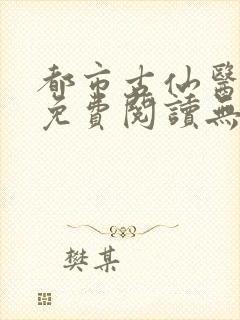 都市古仙醫
免費閱讀無
樊某